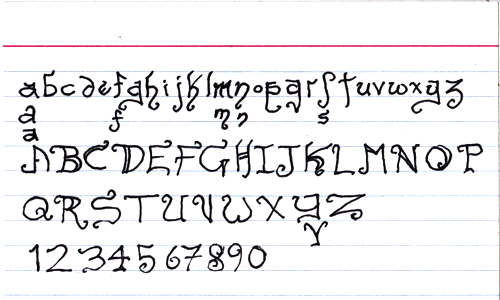 abcdefghijklmnopqrstuvwxyz
a f m n s
a
ABCDEFGHIJKLMNOP
QRSTUVWXYZ
Y
1234567890